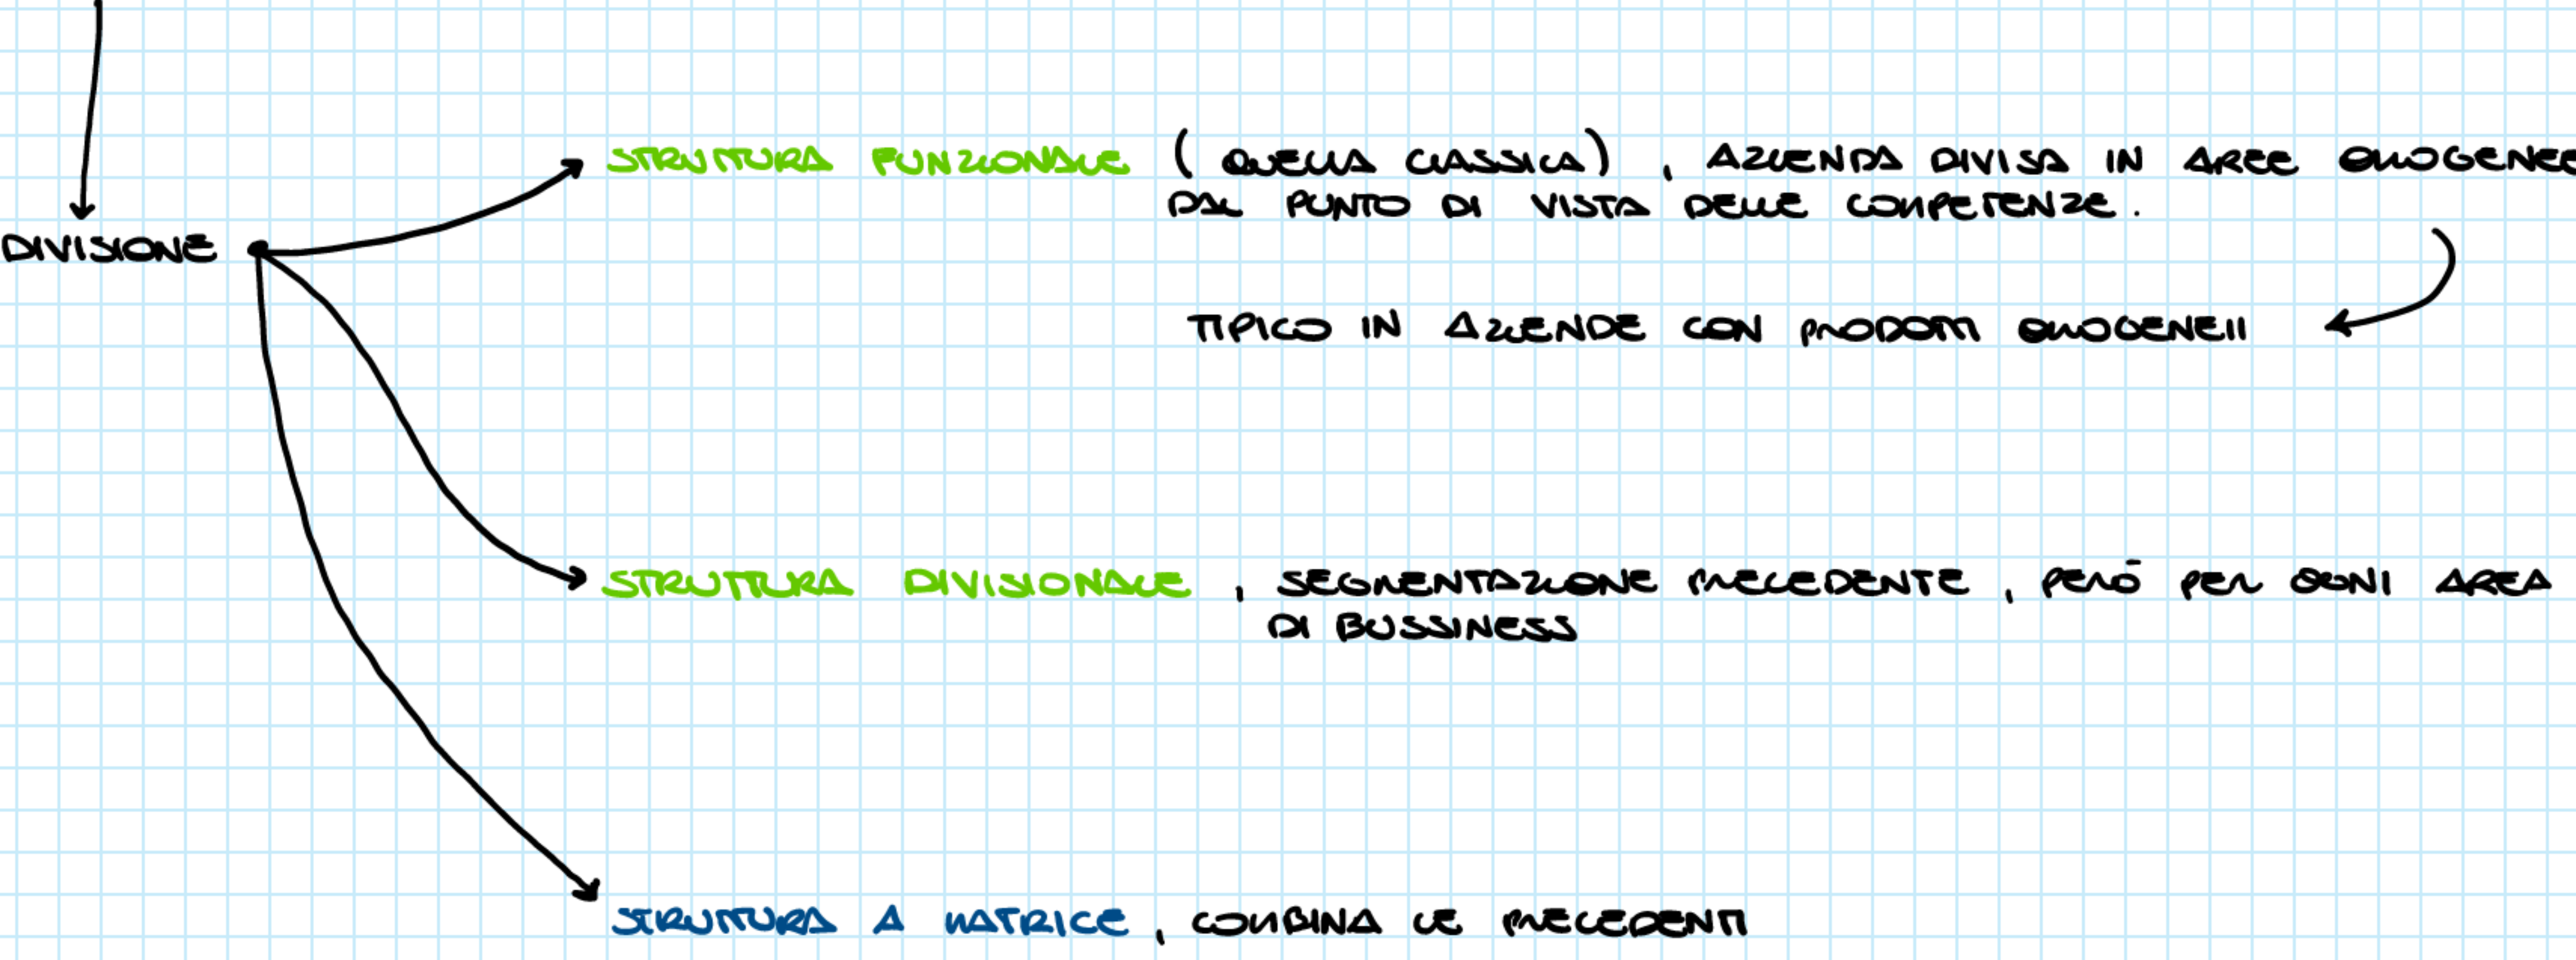 STRUTTURA FUNZIONALE (QUELLA CLASSICA), AZIENDA DIVISA IN AREE OMOGENEE
DAL PUNTO DI VISTA DELLE COMPETENZE.
DIVISIONE
TIPICO IN AZIENDE CON PRODOTTI OMOGENEII
STRUTTURA DIVISIONALE, SEGMENTAZIONE PRECEDENTE, PERÒ PER OGNI AREA
DI BUSSINESS
STRUTTURA A MATRICE, COMBINA LE PRECEDENTI